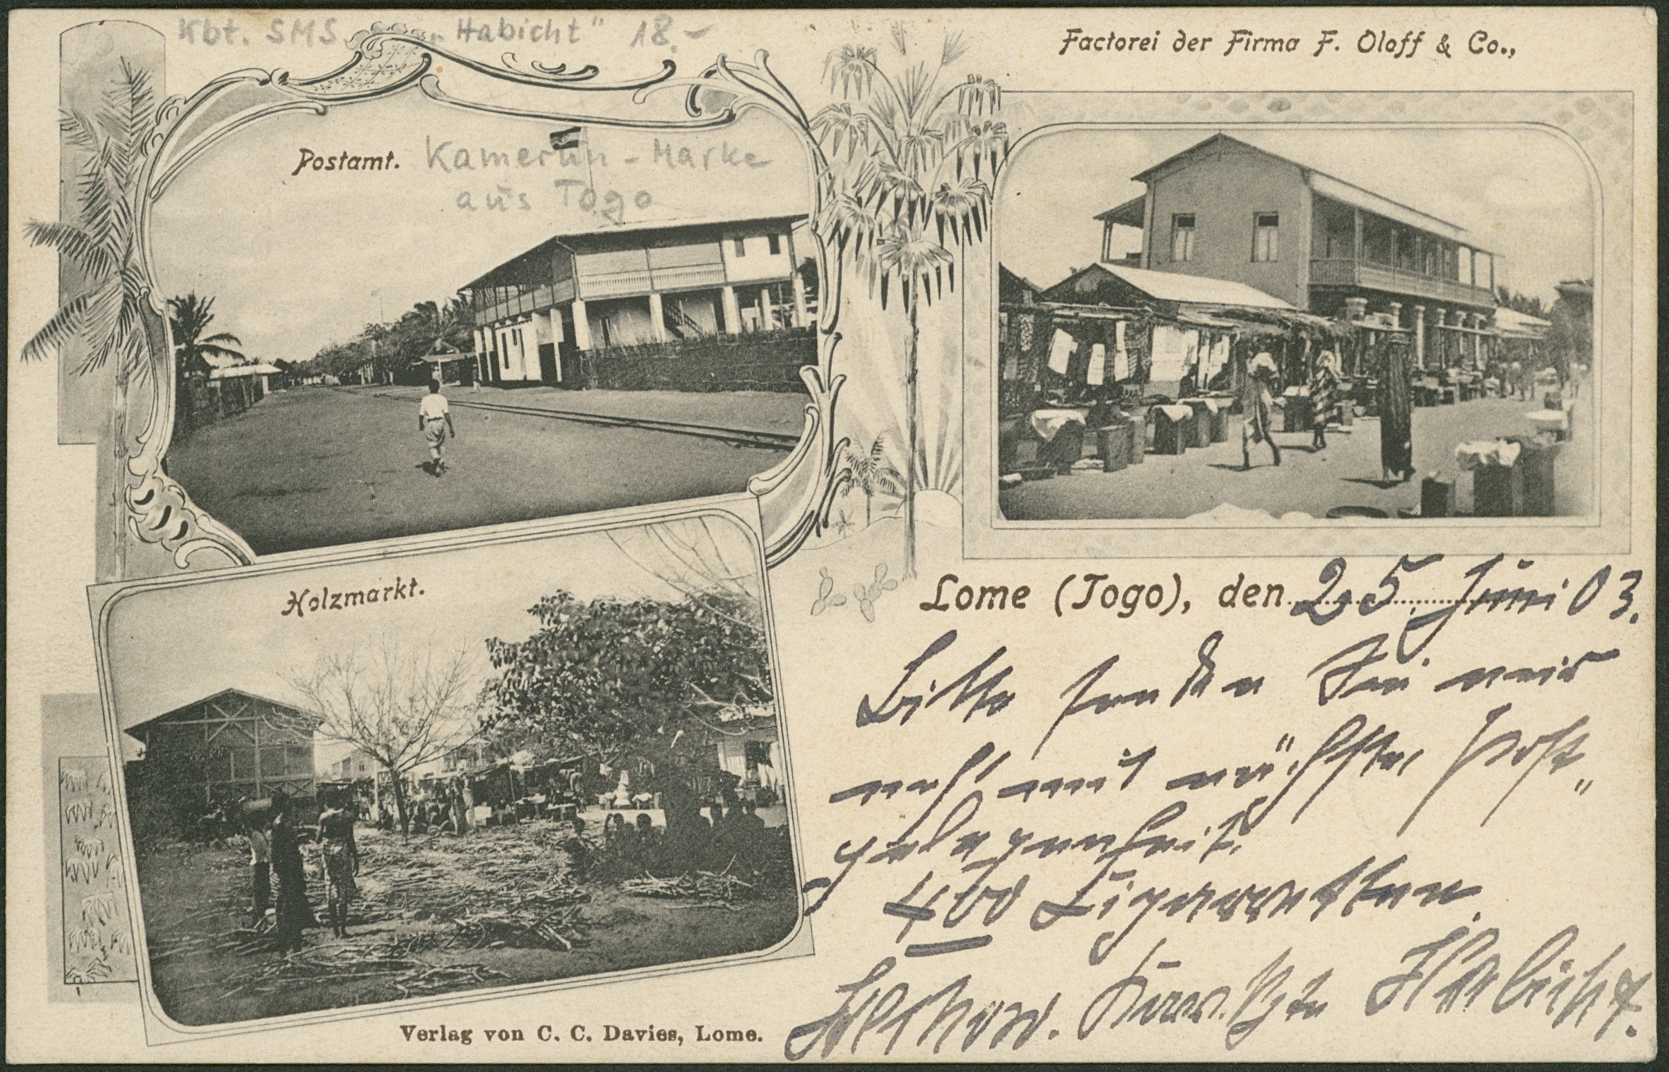 Kbt. SMS. "Habicht" 18.-
Factorei der Firma F. Oloff & Co.,
Postamt.
Kamerun - Marke
aus Togo
Holzmarkt.
Lome (Togo), den 25. Juni 03.
Bitte senden Sie mir
mit nächster Post„
gelegenheit
400 Zigarretten
Habicht.
Verlag von C. C. Davies, Lome.